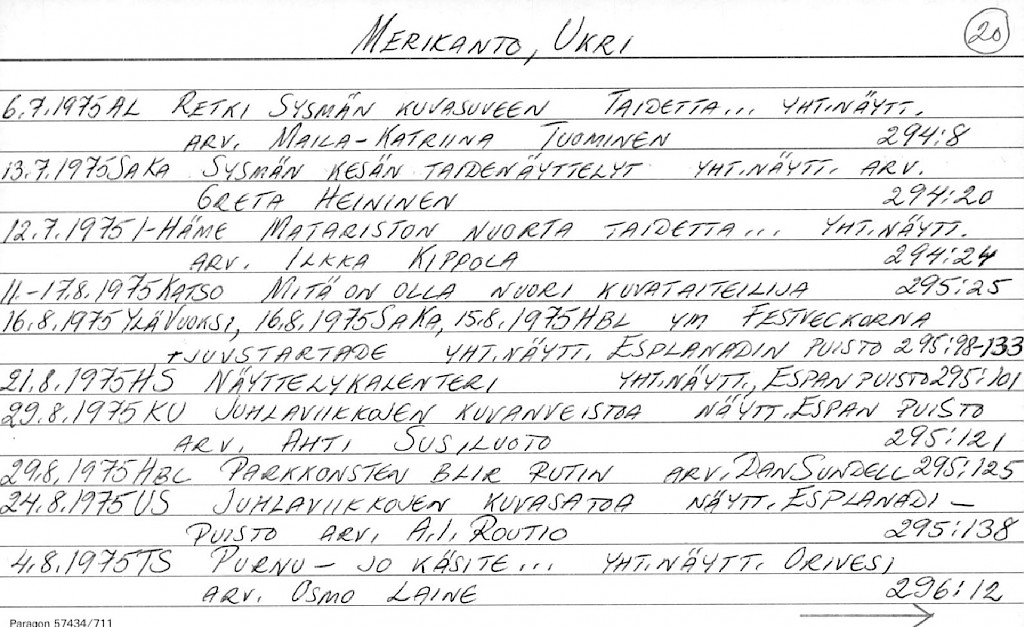 MERIKANTO, UKRI 20
6.7.1975 AL RETKI SYSMÄN KUVASUVEEN TAIDETTA... YHT.NÄYTT.
ARV. MAILA-KATRIINA TUOMINEN 294:8
13.7.1975 SAKA SYSMÄN KESÄN TAIDENÄYTTELYT YHT.NÄYTT. ARV.
GRETA HEININEN 294:20
12.7.1975 I-HÄME MATARISTON NUORTA TAIDETTA... YHT.NÄYTT.
ARV. ILKKA KIPPOLA 294:24
11.-17.8.1975 KATSO MITÄ ON OLLA NUORI KUVATAITEILIJA 295:25
16.8.1975 YLÄVUOKSI, 16.8.1975 SAKA, 15.8.1975 HBL YM FESTVECKORNA
TJUVSTARTADE YHT.NÄYTT. ESPLANADIN PUISTO 295:98-133
21.8.1975 HS NÄYTTELYKALENTERI YHT.NÄYTT., ESPAN PUISTO 295:101
29.8.1975 KU JUHLAVIIKKOJEN KUVANVEISTOA NÄYTT. ESPAN PUISTO
ARV. AHTI SUSILUOTO 295:121
29.8.1975 HBL PARKKONSTEN BLIR RUTIN ARV. DAN SUNDELL 295:125
24.8.1975 US JUHLAVIIKKOJEN KUVASATOA NÄYTT. ESPLANADI-
PUISTO ARV. A.I. ROUTIO 295:138
4.8.1975 TS PURNU - JO KÄSITE... YHT.NÄYTT. ORIVESI
ARV. OSMO LAINE 296:12
Paragon 57434/711